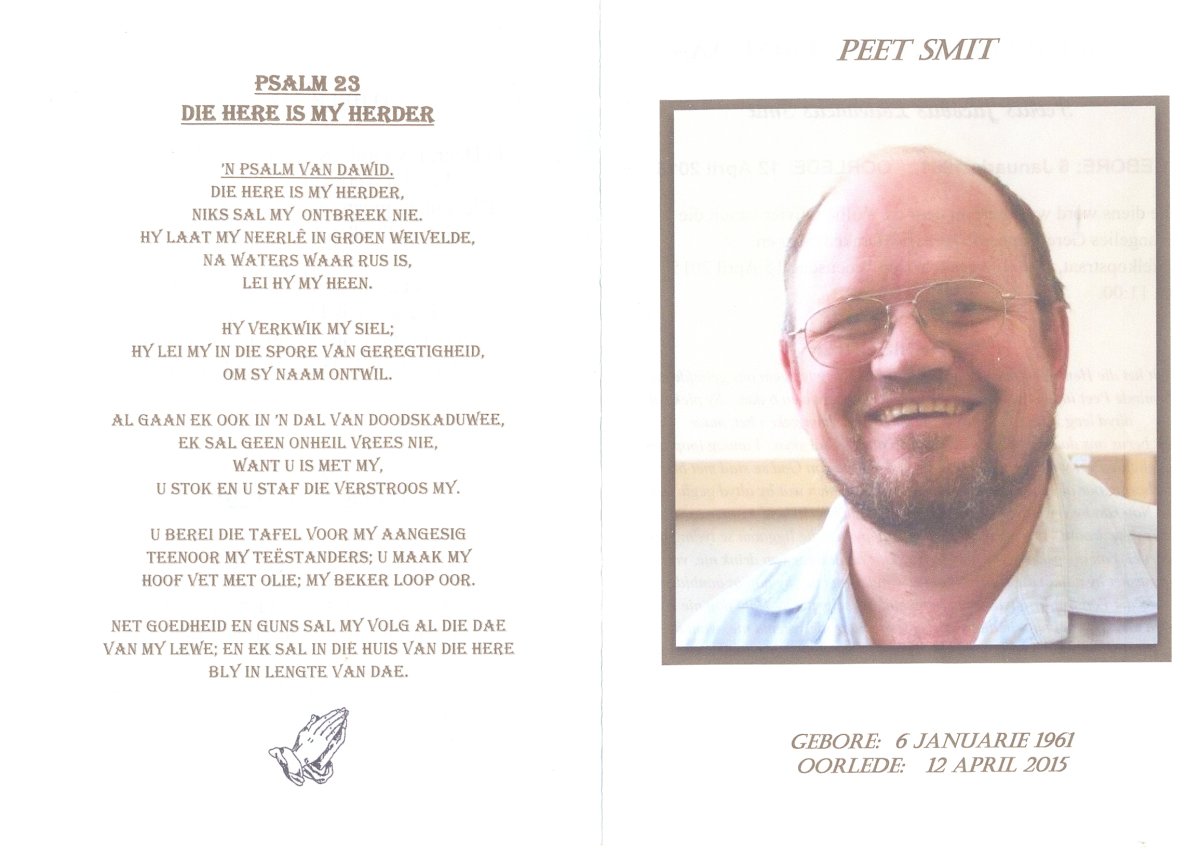 PSALM 23
DIE HERE IS MY HERDER
'N PSALM VAN DAWID.
DIE HERE IS MY HERDER,
NIKS SAL MY ONTBREEK NIE.
HY LAAT MY NEERLÊ IN GROEN WEIVELDE,
NA WATERS WAAR RUS IS,
LEI HY MY HEEN.
HY VERKWIK MY SIEL;
HY LEI MY IN DIE SPORE VAN GEREGTIGHEID,
OM SY NAAM ONTWIL.
AL GAAN EK OOK IN 'N DAL VAN DOODSKADUWEE,
EK SAL GEEN ONHEIL VREES NIE,
WANT U IS MET MY,
U STOK EN U STAF DIE VERSTROOS MY.
U BEREI DIE TAFEL VOOR MY AANGESIG
TEENOOR MY TEËSTANDERS; U MAAK MY
HOOF VET MET OLIE; MY BEKER LOOP OOR.
NET GOEDHEID EN GUNS SAL MY VOLG AL DIE DAE
VAN MY LEWE; EN EK SAL IN DIE HUIS VAN DIE HERE
BLY IN LENGTE VAN DAE.
PEET SMIT
GEBORE: 6 JANUARIE 1961
OORLEDE: 12 APRIL 2015